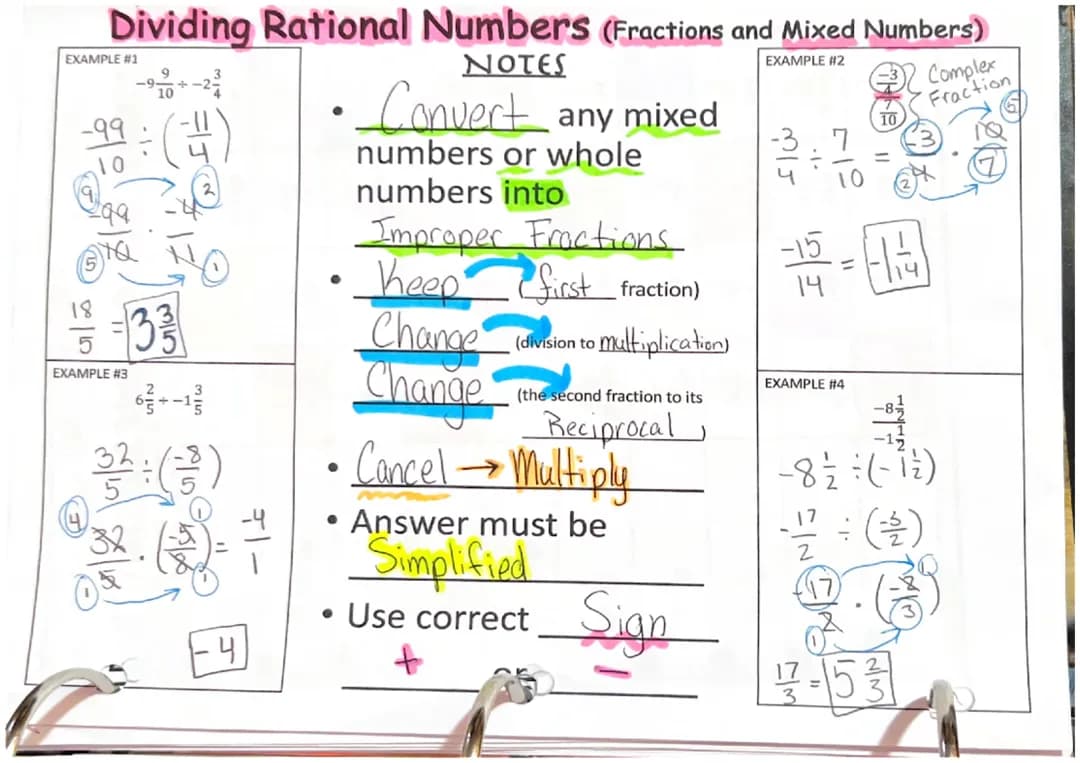 Dividing Rational Numbers (Fractions and Mixed Numbers)
EXAMPLE #1
-9 9/10 ÷ -2 3/4
-99/10 ÷ (-11/4)
9 2
-99/10 · -4/11
5 1
18/5 = 3 3/5
EXAMPLE #3
6 2/5 ÷ -1 3/5
32/5 ÷ (-8/5)
4 1
32/5 · (-5/8) = -4/1
1 1
-4
NOTES
• Convert any mixed
numbers or whole
numbers into
Improper Fractions
• Keep (first fraction)
Change (division to multiplication)
Change (the second fraction to its
Reciprocal)
• Cancel → Multiply
• Answer must be
Simplified
• Use correct Sign
+ or −
EXAMPLE #2
-3/4 / 7/10 } Complex
Fraction
5
-3/4 ÷ 7/10 = -3/4 · 10/7
2
-15/14 = -1 1/14
EXAMPLE #4
-8 1/2 / -1 1/2
-8 1/2 ÷ (-1 1/2)
-17/2 ÷ (-3/2)
1
-17/2 · (-2/3)
1
17/3 = 5 2/3